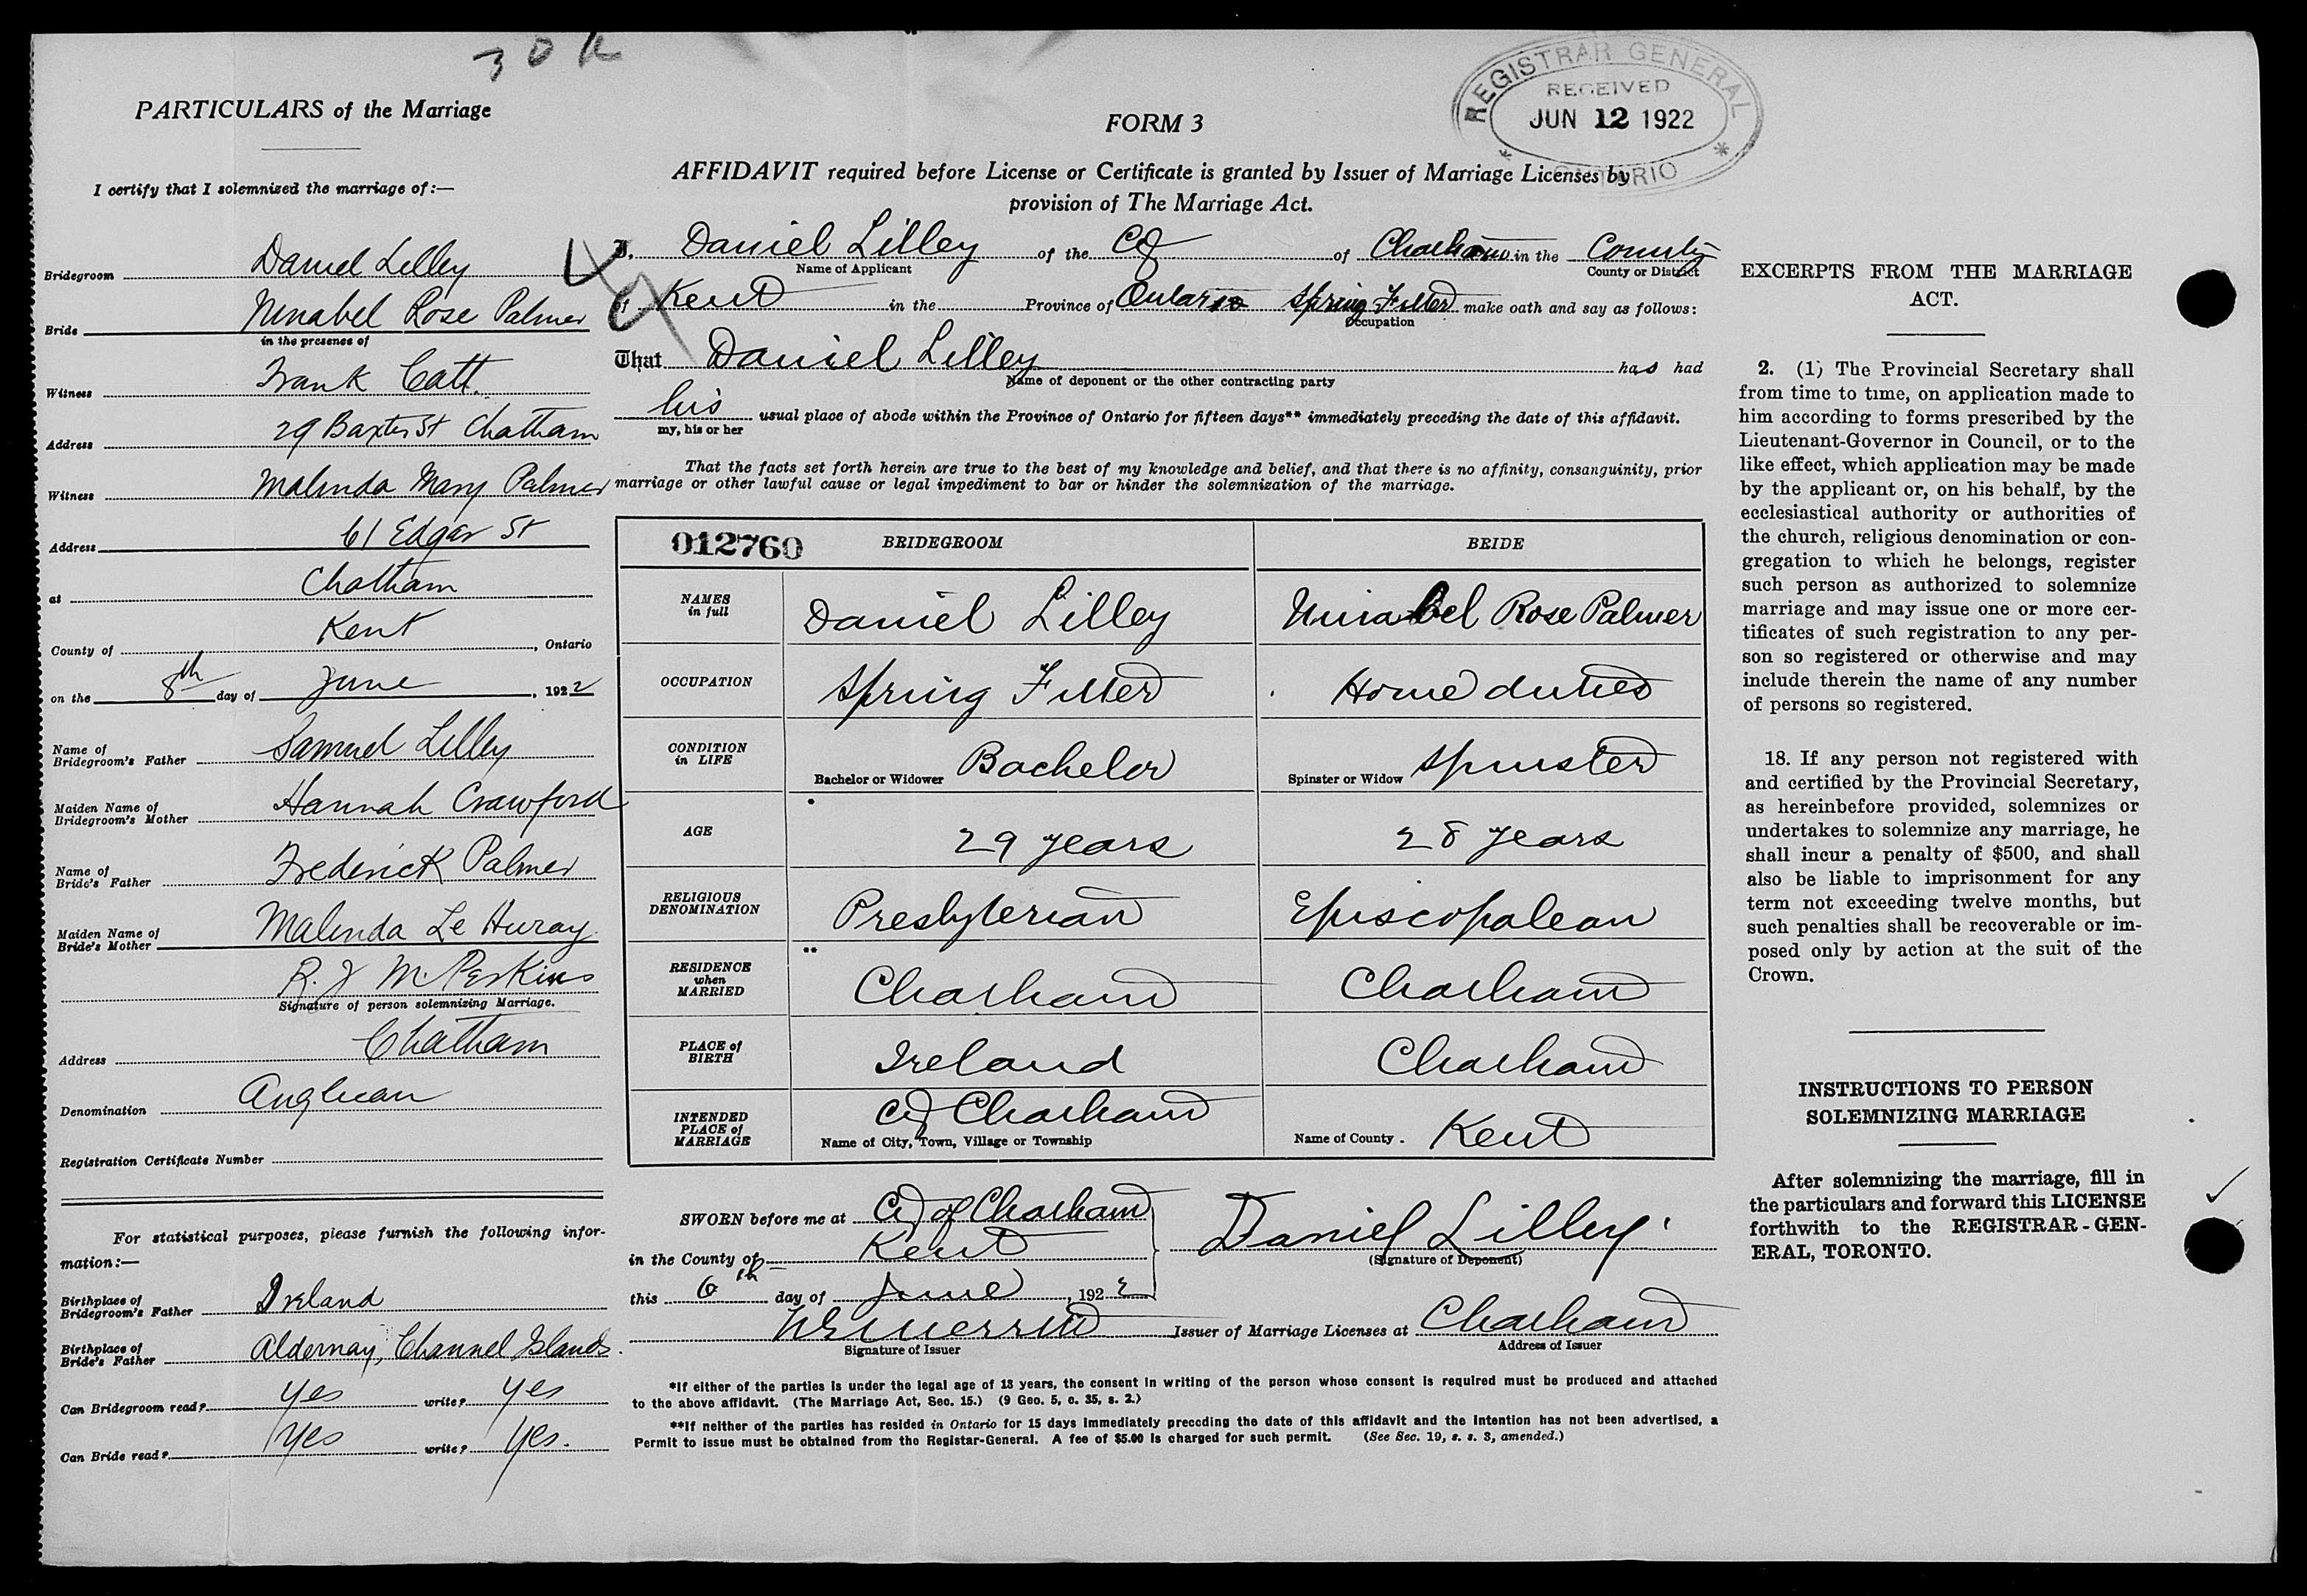 30 k
PARTICULARS of the Marriage
I certify that I solemnized the marriage of:—
Bridegroom Daniel Lilley
Bride Rose Palmer
in the presence of
Witness Frank Catt.
Address 29 Baxter St Chatham
Witness Malinda Mary Palmer
Address 61 Edgar St
at Chatham
County of Kent, Ontario
on the 8th day of June, 1922
Name of
Bridegroom's Father Samuel Lilley
Maiden Name of
Bridegroom's Mother Hannah Crawford
Name of
Bride's Father Frederick Palmer
Maiden Name of
Bride's Mother Malinda Le Huray
R. J. M. Perkins
Signature of person solemnizing Marriage.
Address Chatham
Denomination Anglican
Registration Certificate Number
For statistical purposes, please furnish the following infor-
mation:—
Birthplace of
Bridegroom's Father Ireland
Birthplace of
Bride's Father Aldernay, Channel Islands.
Can Bridegroom read? Yes write? Yes
Can Bride read? Yes write? Yes.
REGISTRAR GENERAL
RECEIVED
JUN 12 1922
* ONTARIO *
FORM 3
AFFIDAVIT required before License or Certificate is granted by Issuer of Marriage Licenses by
provision of The Marriage Act.
I, Daniel Lilley of the Cy of Chatham in the County
Name of Applicant County or District
of Kent in the Province of Ontario Spring Fitter make oath and say as follows:
Occupation
That Daniel Lilley has had
Name of deponent or the other contracting party
his usual place of abode within the Province of Ontario for fifteen days** immediately preceding the date of this affidavit.
my, his or her
That the facts set forth herein are true to the best of my knowledge and belief, and that there is no affinity, consanguinity, prior
marriage or other lawful cause or legal impediment to bar or hinder the solemnization of the marriage.
012760 BRIDEGROOM BRIDE
NAMES
in full Daniel Lilley Rose Palmer
OCCUPATION Spring Fitter Home duties
CONDITION
in LIFE Bachelor or Widower Bachelor Spinster or Widow Spinster
AGE 29 years 28 years
RELIGIOUS
DENOMINATION Presbyterian Episcopalean
RESIDENCE
when
MARRIED Chatham Chatham
PLACE of
BIRTH Ireland Chatham
INTENDED
PLACE of
MARRIAGE Cy Chatham Kent
Name of City, Town, Village or Township Name of County
SWORN before me at Cy of Chatham
in the County of Kent
this 6th day of June, 1922
Daniel Lilley
(Signature of Deponent)
Merritt Issuer of Marriage Licenses at Chatham
Signature of Issuer Address of Issuer
*If either of the parties is under the legal age of 18 years, the consent in writing of the person whose consent is required must be produced and attached
to the above affidavit. (The Marriage Act, Sec. 15.) (9 Geo. 5, c. 35, s. 2.)
**If neither of the parties has resided in Ontario for 15 days immediately preceding the date of this affidavit and the intention has not been advertised, a
Permit to issue must be obtained from the Registar-General. A fee of $5.00 is charged for such permit. (See Sec. 19, s. s. 3, amended.)
EXCERPTS FROM THE MARRIAGE
ACT.
2. (1) The Provincial Secretary shall
from time to time, on application made to
him according to forms prescribed by the
Lieutenant-Governor in Council, or to the
like effect, which application may be made
by the applicant or, on his behalf, by the
ecclesiastical authority or authorities of
the church, religious denomination or con-
gregation to which he belongs, register
such person as authorized to solemnize
marriage and may issue one or more cer-
tificates of such registration to any per-
son so registered or otherwise and may
include therein the name of any number
of persons so registered.
18. If any person not registered with
and certified by the Provincial Secretary,
as hereinbefore provided, solemnizes or
undertakes to solemnize any marriage, he
shall incur a penalty of $500, and shall
also be liable to imprisonment for any
term not exceeding twelve months, but
such penalties shall be recoverable or im-
posed only by action at the suit of the
Crown.
INSTRUCTIONS TO PERSON
SOLEMNIZING MARRIAGE
After solemnizing the marriage, fill in
the particulars and forward this LICENSE
forthwith to the REGISTRAR-GEN-
ERAL, TORONTO.